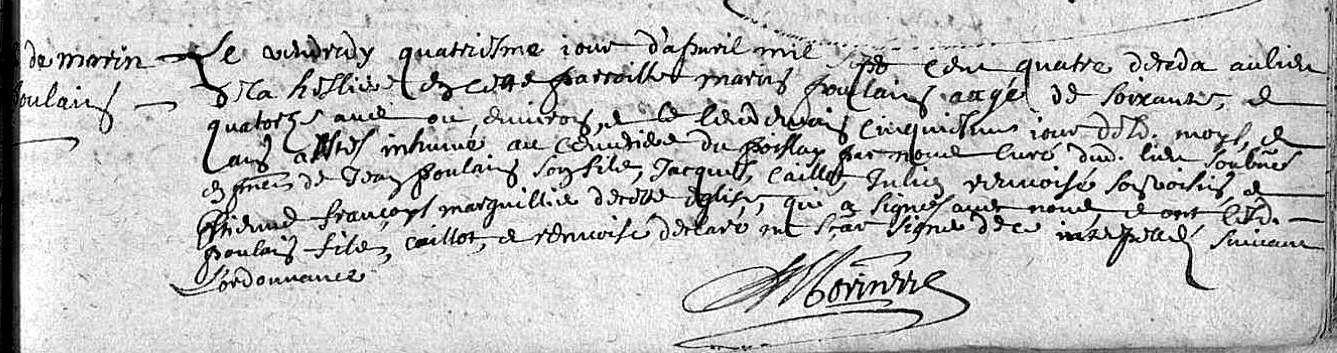 de marin
poulain
Le vendredy quatriesme jour d'apvril mil sept cent quatre deceda au lieu
de la helliere en cette parroisse marin poulain aagé de soixante, et
quatorze ans ou environ, et le lendemain cinquiesme jour dud. moys, et
an, a esté inhumé au cemitiere du poislay par nous curé dud. lieu soubsné
en pnce de Jean poulain son fils, Jacques Caillot, Julien renvoisé ses voisins, et
Estienne françoys marguillier de cette eglise, qui a signé avec nous, et ont lesd.
poulain fils, caillot, et renvoisé declaré ne sçav. signer de ce interpellé suivant
l'ordonnance